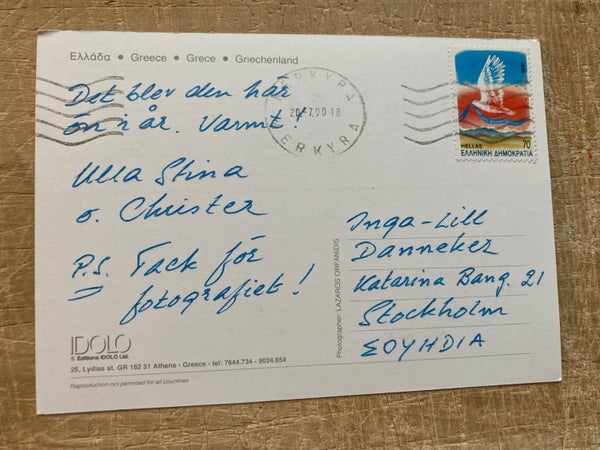 Ελλάδα • Greece • Grece • Griechenland
Det blev den här
ön i år. Varmt!
Ulla Stina
o. Christer
P.S. Tack för
fotografiet!
ΚΕΡΚΥΡΑ
20.7.90-18
KERKYRA
HELLAS 70
ΕΛΛΗΝΙΚΗ ΔΗΜΟΚΡΑΤΙΑ
Inga-Lill
Danneker
Katarina Bang. 21
Stockholm
ΣΟΥΗΔΙΑ
Photographer: LAZAROS ORFANIDIS
IDOLO
© Editions IDOLO Ltd.
25, Lydias st. GR 162 31 Athens - Greece - tel: 7644.734 - 9024.654
Reproduction not permited for all countries